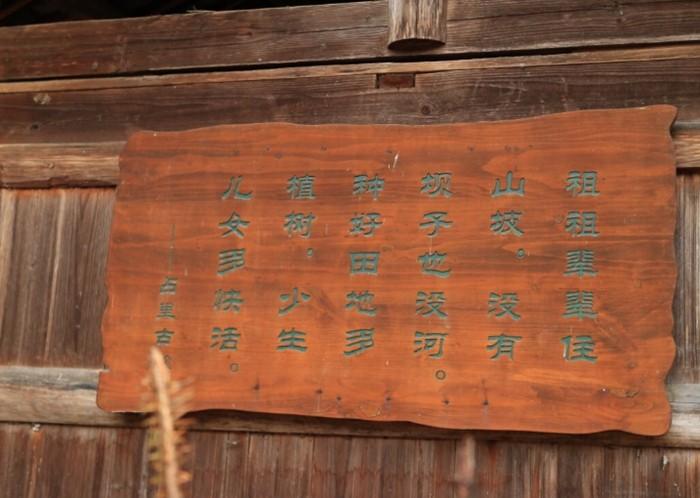 祖祖辈辈住
山坡。没有
坝子也没河。
种好田地多
植树。少生
儿女多快活。
——占里古